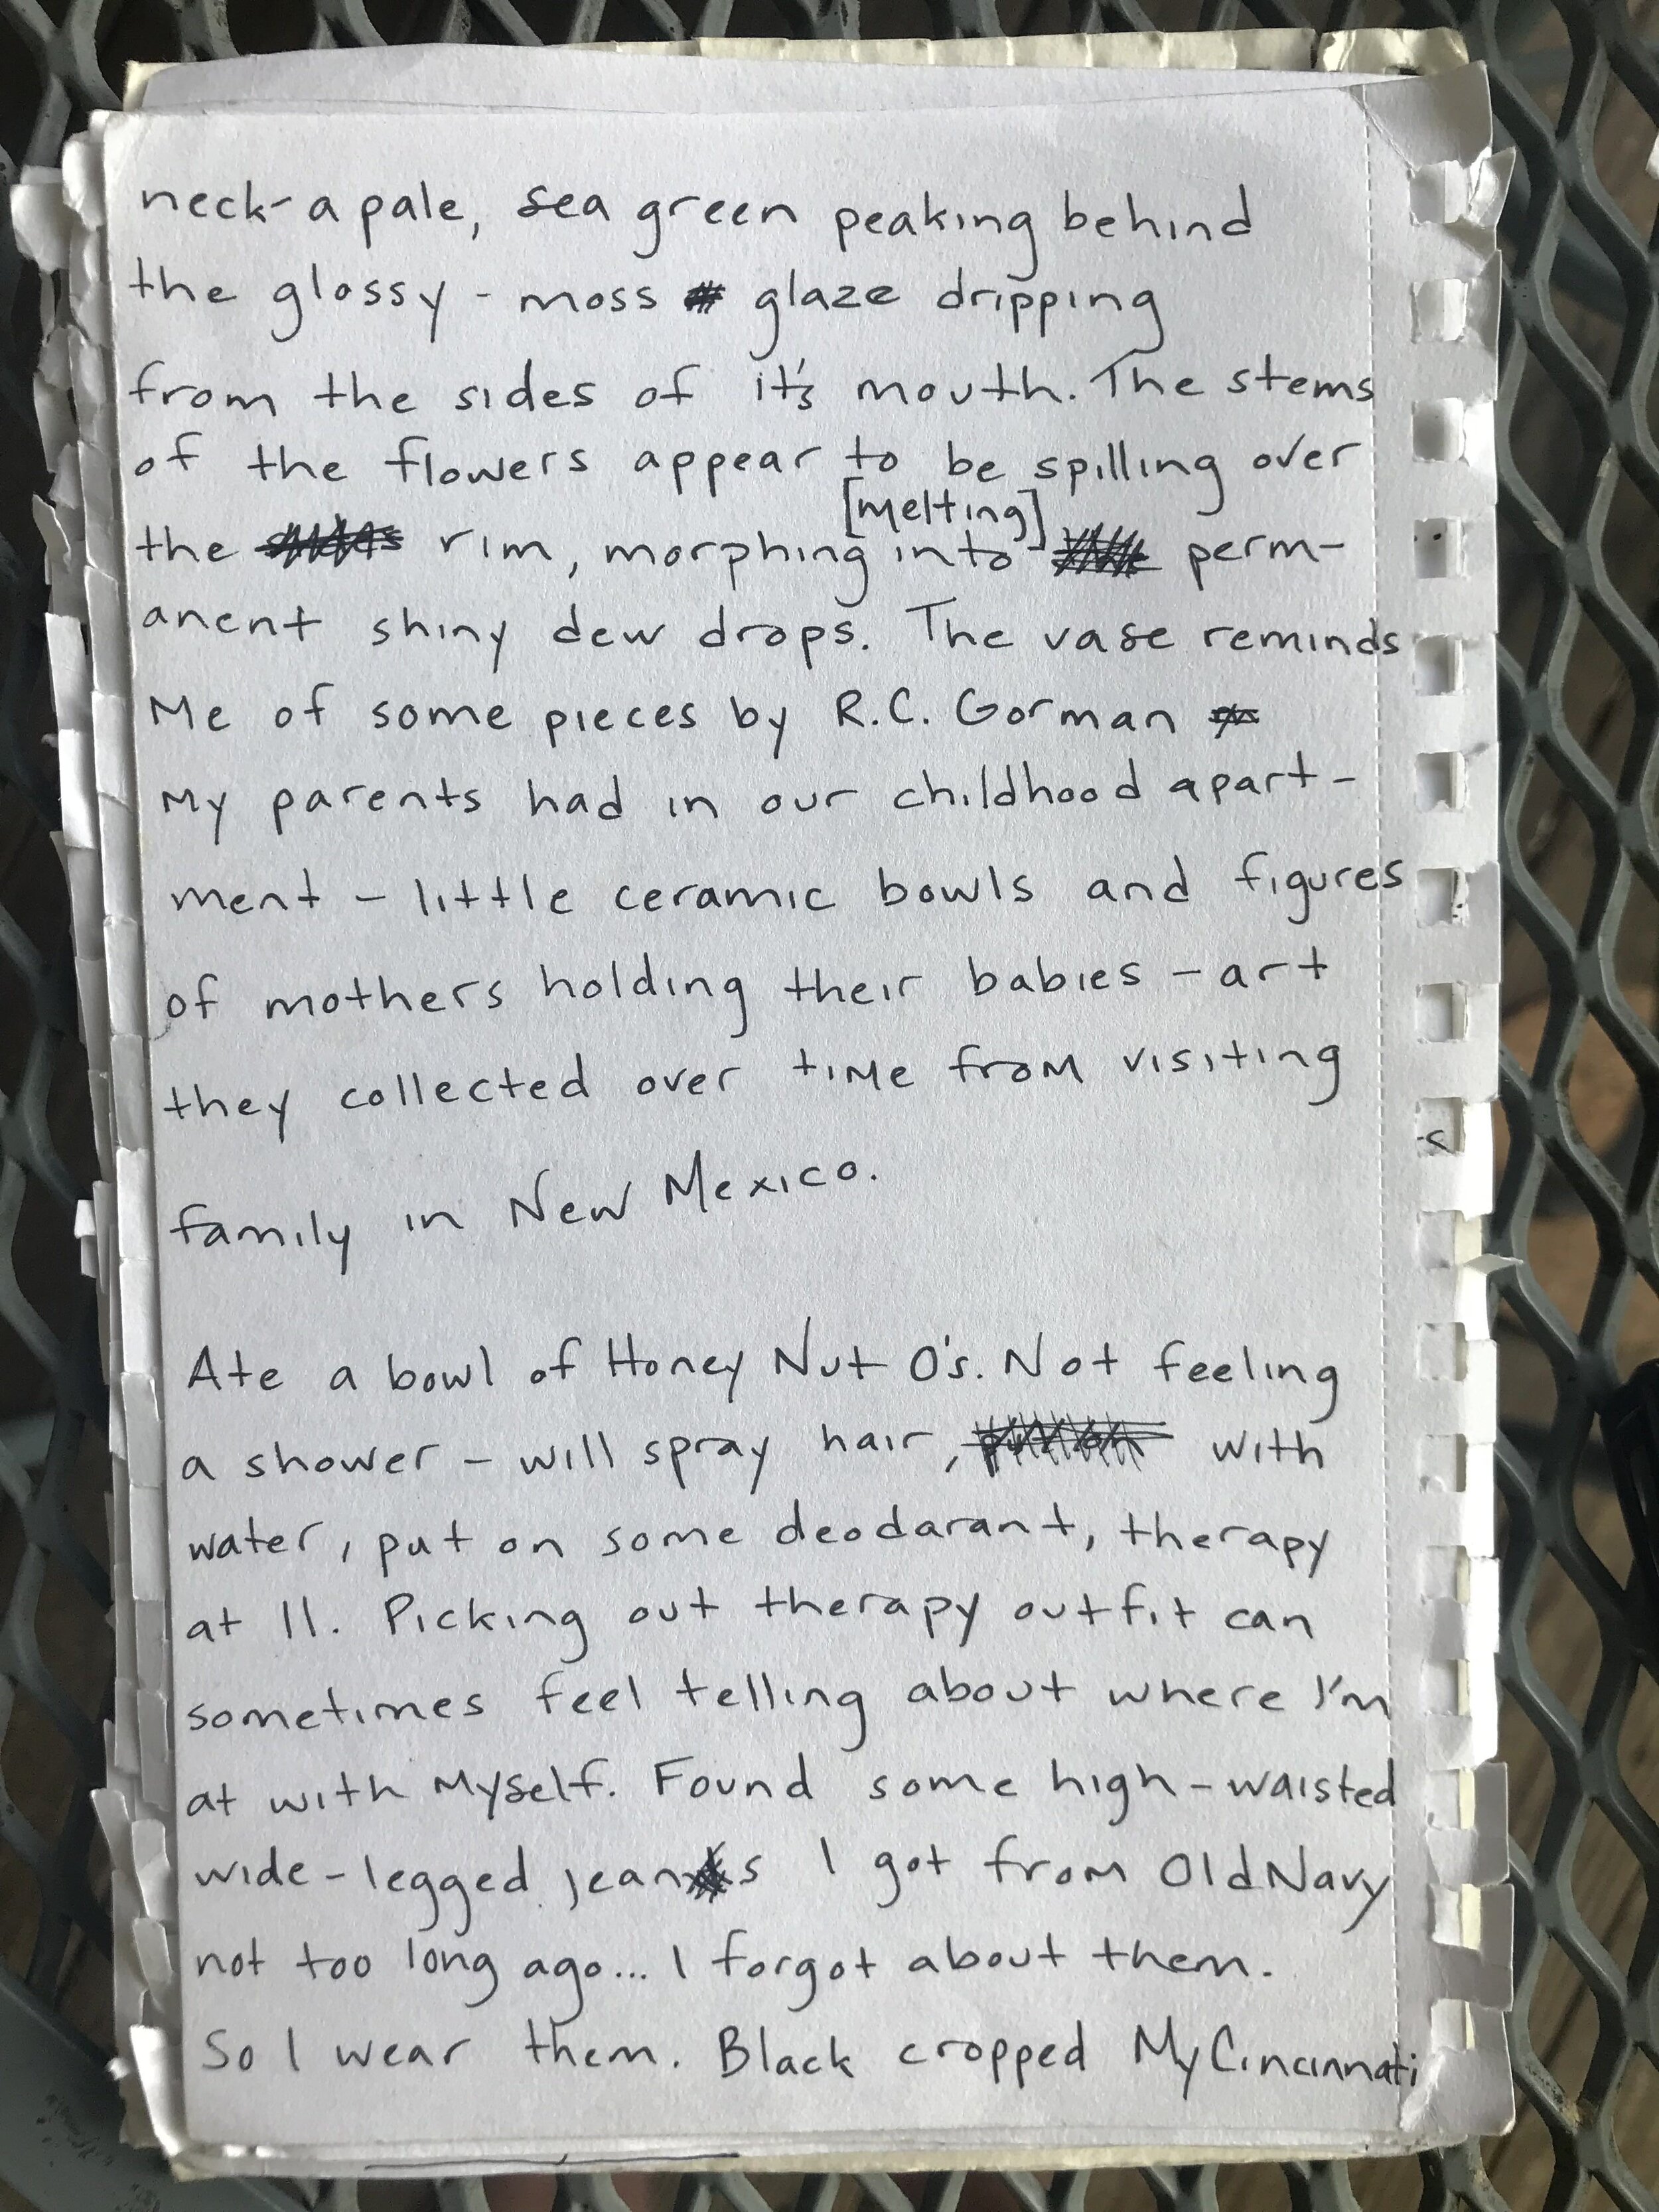 neck - a pale, sea green peaking behind
the glossy - moss glaze dripping
from the sides of it's mouth. The stems
of the flowers appear to be spilling over
[melting]
the rim, morphing into perm-
anent shiny dew drops. The vase reminds
me of some pieces by R.C. Gorman
my parents had in our childhood apart-
ment - little ceramic bowls and figures
of mothers holding their babies - art
they collected over time from visiting
family in New Mexico.
Ate a bowl of Honey Nut O's. Not feeling
a shower - will spray hair, with
water, put on some deodarant, therapy
at 11. Picking out therapy outfit can
sometimes feel telling about where I'm
at with myself. Found some high-waisted
wide-legged jeans I got from Old Navy
not too long ago... I forgot about them.
So I wear them. Black cropped MyCincinnati